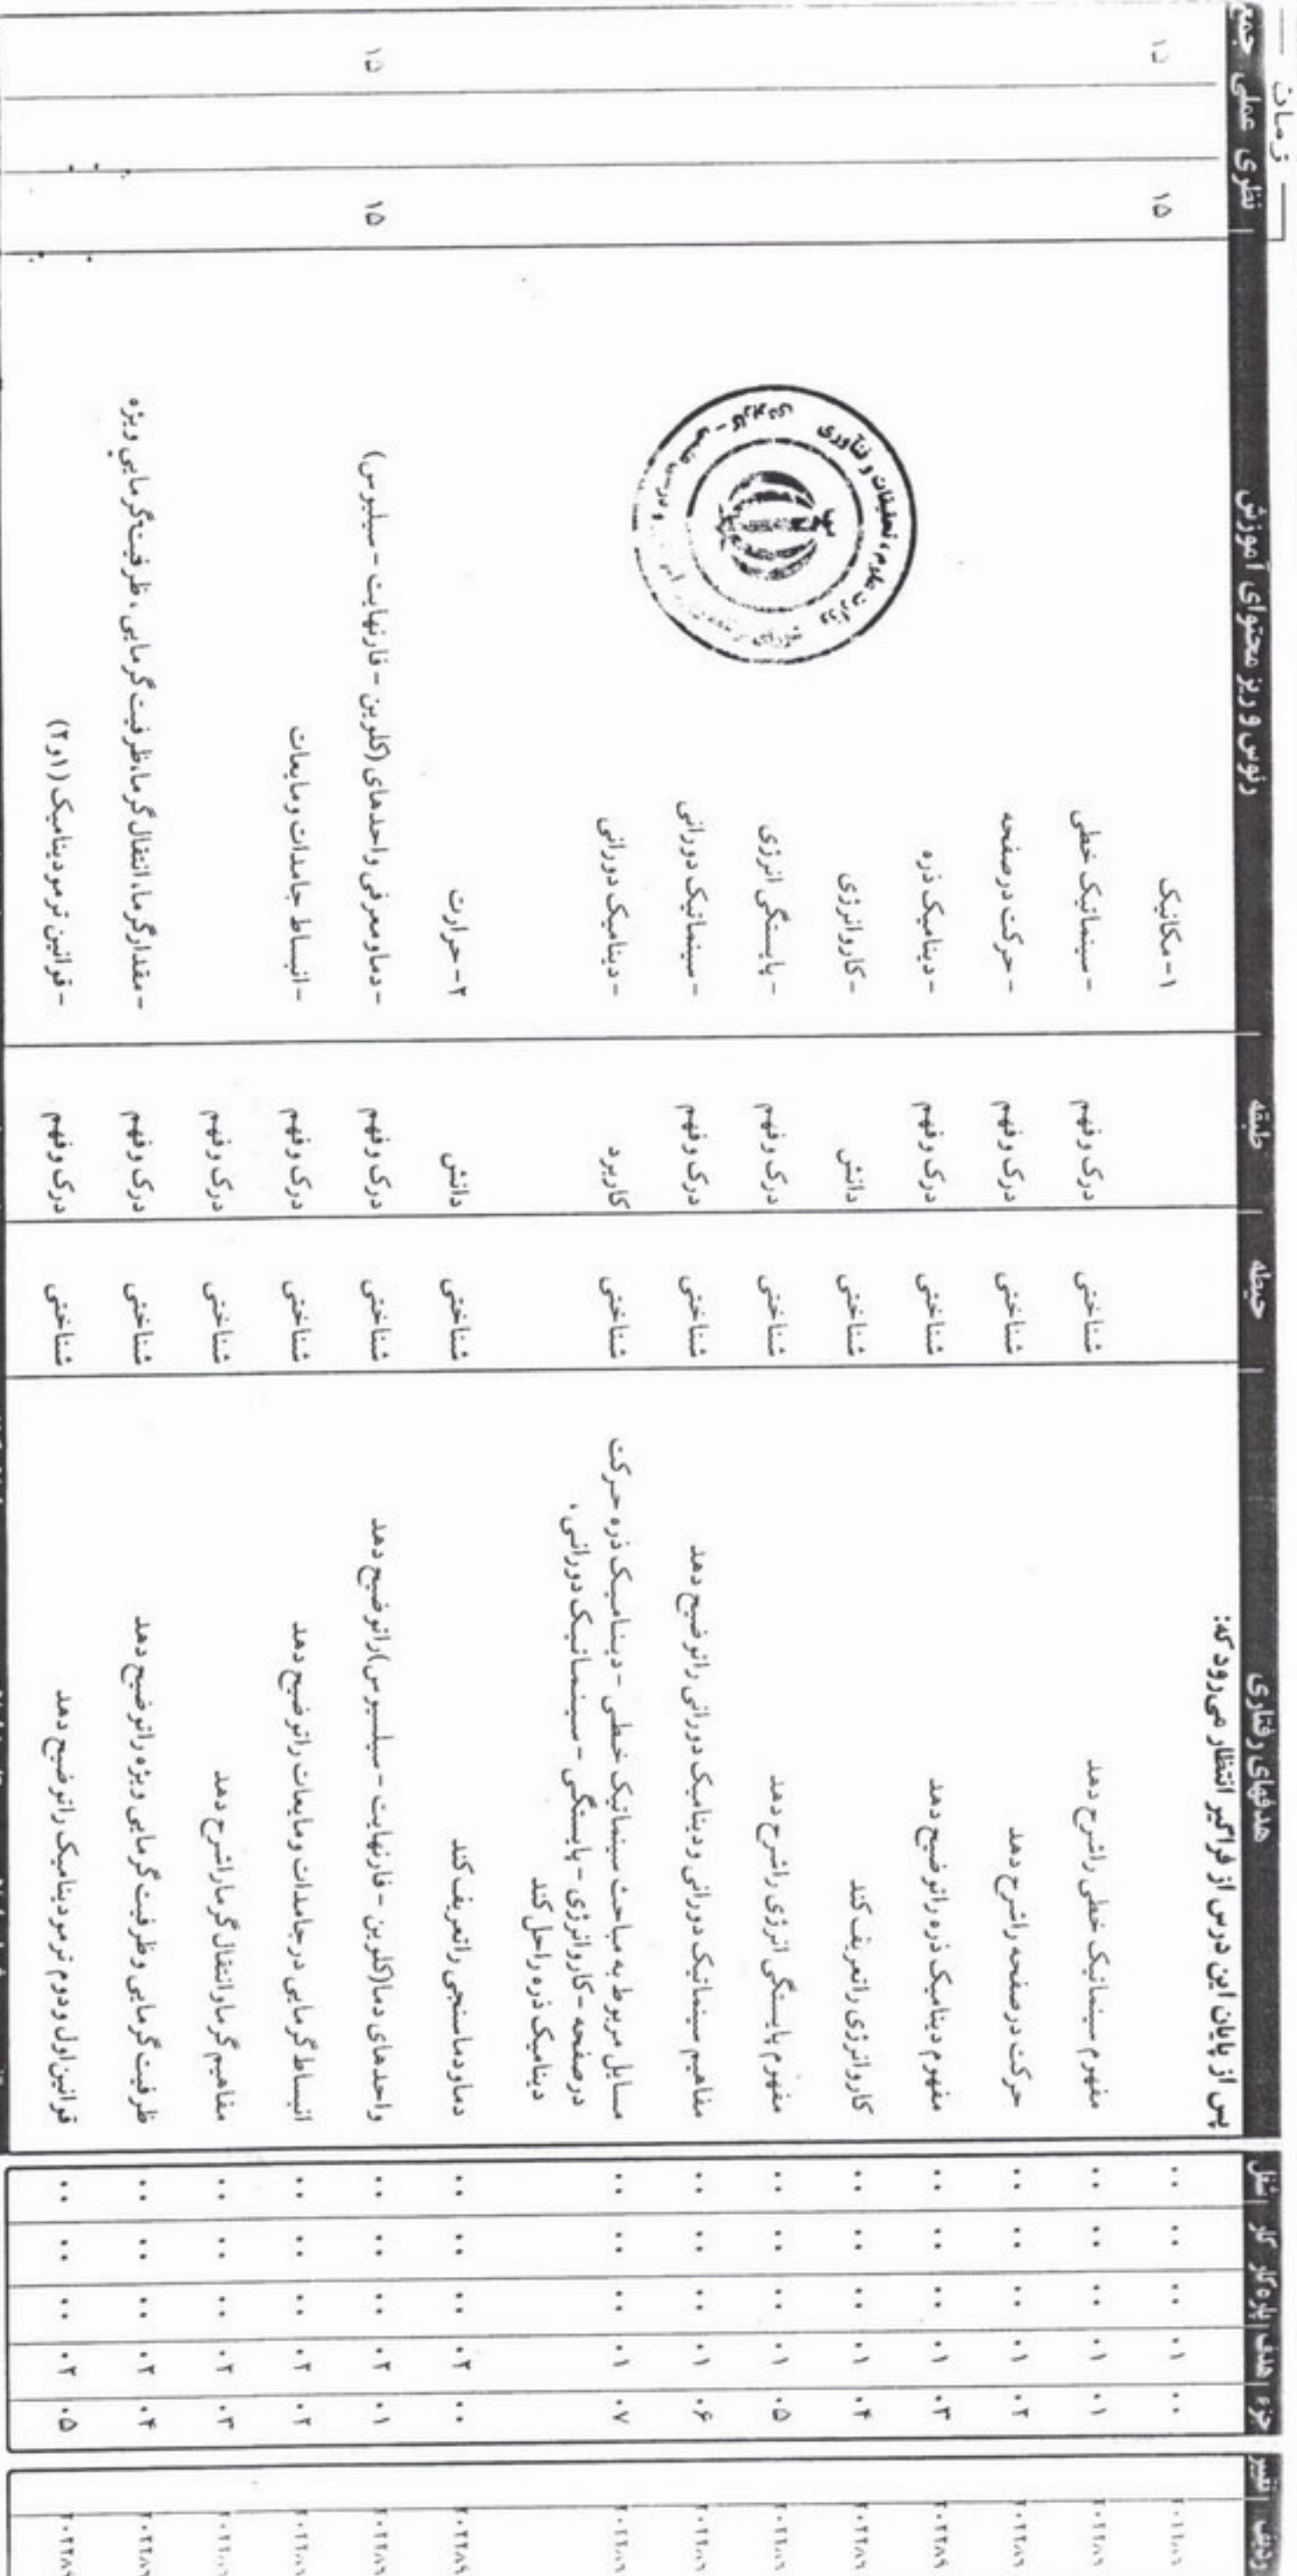 زمان
ردیف تغییر جزء هدف پاره کار کار شغل هدفهای رفتاری حیطه طبقه رئوس و ریز محتوای آموزش نظری عملی جمع
پس از پایان این درس از فراگیر انتظار می‌رود که:
۰۰ ۰۱ ۰۰ ۰۰ ۰۰ ۱- مکانیک ۱۵ ۱۵
۰۱ ۰۱ ۰۰ ۰۰ ۰۰ مفهوم سینماتیک خطی راشرح دهد شناختی درک وفهم - سینماتیک خطی
۰۲ ۰۱ ۰۰ ۰۰ ۰۰ حرکت درصفحه راشرح دهد شناختی درک وفهم - حرکت درصفحه
۰۳ ۰۱ ۰۰ ۰۰ ۰۰ مفهوم دینامیک ذره راتوضیح دهد شناختی درک وفهم - دینامیک ذره
۰۴ ۰۱ ۰۰ ۰۰ ۰۰ کاروانرژی راتعریف کند شناختی دانش - کاروانرژی
۰۵ ۰۱ ۰۰ ۰۰ ۰۰ مفهوم پایستگی انرژی راشرح دهد شناختی درک وفهم - پایستگی انرژی
۰۶ ۰۱ ۰۰ ۰۰ ۰۰ مفاهیم سینماتیک دورانی ودینامیک دورانی راتوضیح دهد شناختی درک وفهم - سینماتیک دورانی
۰۷ ۰۱ ۰۰ ۰۰ ۰۰ مسایل مربوط به مباحث سینماتیک خطی - دینامیک ذره حرکت شناختی کاربرد - دینامیک دورانی
درصفحه - کاروانرژی - پایستگی - سینماتیک دورانی،
دینامیک ذره راحل کند
۰۰ ۰۲ ۰۰ ۰۰ ۰۰ دماودماسنجی راتعریف کند شناختی دانش ۲- حرارت
۰۱ ۰۲ ۰۰ ۰۰ ۰۰ واحدهای دما(کلوین - فارنهایت - سیلسیوس)راتوضیح دهد شناختی درک وفهم - دماومعرفی واحدهای (کلوین - فارنهایت - سیلیوس) ۱۵ ۱۵
۰۲ ۰۲ ۰۰ ۰۰ ۰۰ انبساط گرمایی درجامدات ومایعات راتوضیح دهد شناختی درک وفهم - انبساط جامدات ومایعات
۰۳ ۰۲ ۰۰ ۰۰ ۰۰ مفاهیم گرماوانتقال گرماراشرح دهد شناختی درک وفهم
۰۴ ۰۲ ۰۰ ۰۰ ۰۰ ظرفیت گرمایی وظرفیت گرمایی ویژه راتوضیح دهد شناختی درک وفهم - مقدارگرما،انتقال گرما،ظرفیت گرمایی ، ظرفیت گرمایی ویژه
۰۵ ۰۲ ۰۰ ۰۰ ۰۰ قوانین اول ودوم ترمودینامیک راتوضیح دهد شناختی درک وفهم - قوانین ترمودینامیک (۱و۲)
وزارت علوم، تحقیقات و فناوری